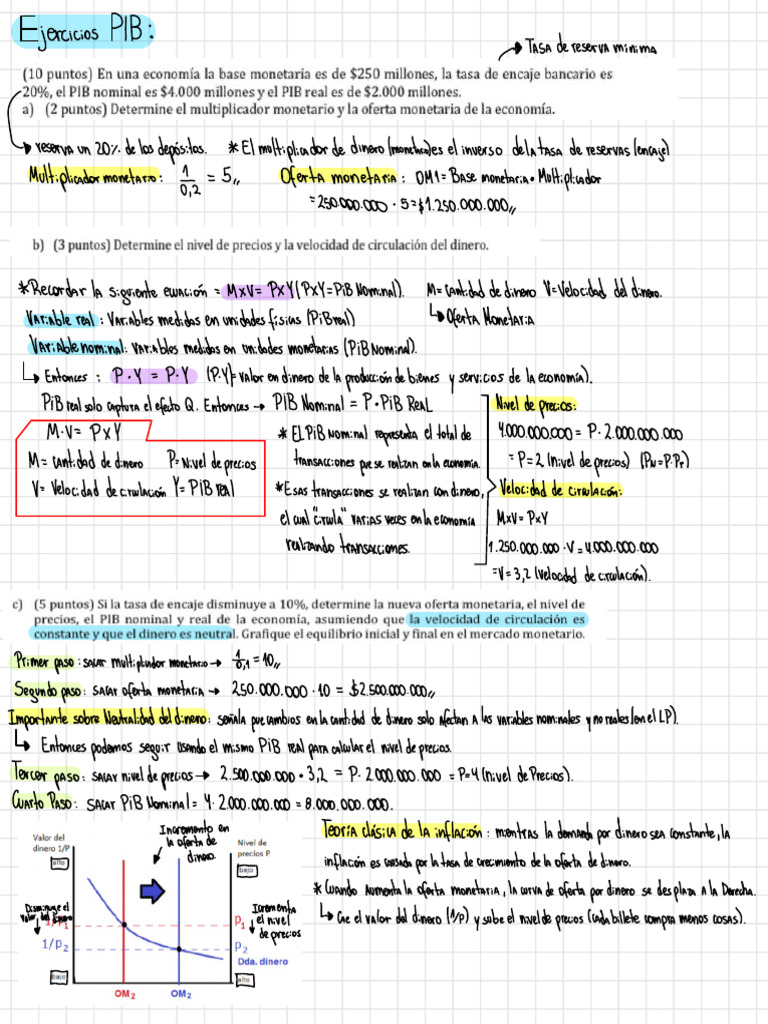 Ejercicios PIB:
→ Tasa de reserva mínima
(10 puntos) En una economía la base monetaria es de $250 millones, la tasa de encaje bancario es
20%, el PIB nominal es $4.000 millones y el PIB real es de $2.000 millones.
a) (2 puntos) Determine el multiplicador monetario y la oferta monetaria de la economía.
→ reserva un 20% de los depósitos. * El multiplicador de dinero (monetario) es el inverso de la tasa de reservas (encaje)
Multiplicador monetario: 1/0,2 = 5,, Oferta monetaria: OM1 = Base monetaria • Multiplicador
= 250.000.000 · 5 = $1.250.000.000,,
b) (3 puntos) Determine el nivel de precios y la velocidad de circulación del dinero.
* Recordar la siguiente ecuación = MxV = PxY (PxY = PiB Nominal). M = cantidad de dinero V = Velocidad del dinero.
↳ Oferta Monetaria
Variable real: Variables medidas en unidades físicas (PiB real)
Variable nominal: variables medidas en unidades monetarias (PiB Nominal).
↳ Entonces: P·Y = P·Y (P·Y) = valor en dinero de la producción de bienes y servicios de la economía).
PiB real solo captura el efecto Q. Entonces → PIB Nominal = P·PiB Real
M·V = PxY
M = cantidad de dinero P = Nivel de precios
V = Velocidad de circulación Y = PiB real
* El PiB Nominal representa el total de
transacciones que se realizan en la economía.
* Esas transacciones se realizan con dinero,
el cual "circula" varias veces en la economía
realizando transacciones.
Nivel de precios:
4.000.000.000 = P · 2.000.000.000
= P = 2 (nivel de precios) (PN = P·Pr)
Velocidad de circulación:
MxV = PxY
1.250.000.000 · V = 4.000.000.000
= V = 3,2 (velocidad de circulación).
c) (5 puntos) Si la tasa de encaje disminuye a 10%, determine la nueva oferta monetaria, el nivel de
precios, el PIB nominal y real de la economía, asumiendo que la velocidad de circulación es
constante y que el dinero es neutral. Grafique el equilibrio inicial y final en el mercado monetario.
Primer paso: sacar multiplicador monetario → 1/0,1 = 10,,
Segundo paso: sacar oferta monetaria → 250.000.000 · 10 = $2.500.000.000,,
Importante sobre Neutralidad del dinero: señala que cambios en la cantidad de dinero solo afectan a las variables nominales y no reales (en el LP).
↳ Entonces podemos seguir usando el mismo PiB real para calcular el nivel de precios.
Tercer paso: sacar nivel de precios → 2.500.000.000 · 3,2 = P · 2.000.000.000 = P = 4 (nivel de Precios).
Cuarto Paso: sacar PiB Nominal = 4 · 2.000.000.000 = 8.000.000.000.
Valor del
dinero 1/P
alto
Incremento en
la oferta de
dinero.
Nivel de
precios P
bajo
Disminuye el
valor del dinero
1/P1
1/P2
bajo
Incrementa
el nivel
de precios
P1
P2
Dda. dinero
alto
OM2 OM2
Teoría clásica de la inflación: mientras la demanda por dinero sea constante, la
inflación es causada por la tasa de crecimiento de la oferta de dinero.
* Cuando aumenta la oferta monetaria, la curva de oferta por dinero se desplaza a la Derecha.
↳ Cae el valor del dinero (1/p) y sube el nivel de precios (cada billete compra menos cosas).